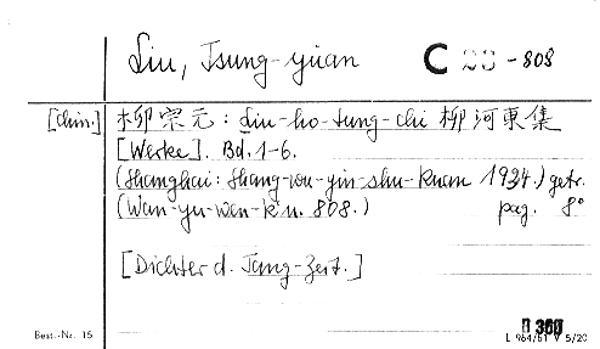 Liu, Tsung-yüan C 28 - 808
[Chin.] 柳宗元: Liu-ho-tung-chi 柳河東集
[Werke]. Bd. 1-6.
(Shanghai: Shang-wu-yin-shu-kuan 1934.) getr.
(Wan-yu-wen-k'u. 808.) pag. 8°
[Dichter d. Tang-Zeit.]
Best.-Nr. 15
L 964/61 V 5/20